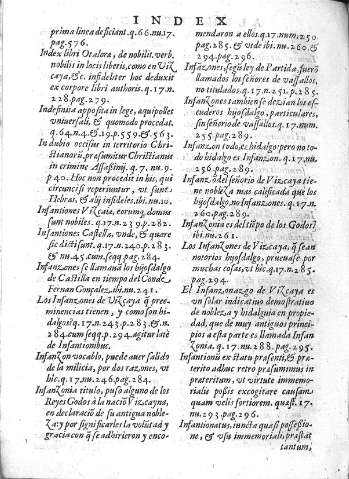 INDEX
prima linea desciant. q.66. nu.17.
pag.576.
Index libri Otalora, de nobilit. verb.
nobilis in locis liberis, como en Viz
caya, &c. infideliter hoc deduxit
ex corpore libri authoris. q.17. n.
228. pag.279.
Indefinita apposita in lege, aequipollet
vniuersali, & quomodo procedat.
q.64. n.4. & .19. p.559. & .563.
In dubio occisus in territorio Chri-
stianorũ, praesumitur Christianus
in crimine Assasinij. q.7. nu.9.
p.40. Hoc non procedit in his, qui
circuncisi reperiuntur, vt sunt
Hebraei, & alij infideles. ibi.nu.10.
Infantiones Vizcaiae, eorumq; domus
sunt nobiles. q.17. n.239. p.282.
Infantiones Castellae, vnde, & quare
sic dicti sunt. q.17. n.240. p.283.
& nu.45. cum seqq. pag.284.
Infanzones se llamauã los hijosdalgo
de Castilla en tiempo del Conde
Fernan Gonçalez. ibi.nu.241.
Los Infanzones de Vizcaya q̃ pree-
minencias tienen, y como son hi-
dalgos? q.17. n.243. p.283. & n.
284. cum seqq. p.294. agitur late
de Infantionibus.
Infanzon vocablo, puede auer salido
de la milicia, por dos razones, vt
hic. q.17. nu.246. pag.284.
Infanzonia titulo, puso alguno de los
Reyes Godos à la nació Vizcayna,
en declaració de su antigua noble-
za: y por significarles la volũtad y
gracia con q̃ se adhirieron y enco-
mendaron a ellos. q.17. num.250.
pag.285. & vide ibi nu.260. &
294. pag.296.
Infãzones, segũ ley de Partida, fuerõ
llamados los señores de vassallos,
no titulados. q.17. n.251. p.285.
Infanzones tambien se dezian los es-
cuderos hijosdalgo, particulares,
sin señorio de vassallos. q.17. num.
255. pag.289.
Infanzon todo, es hidalgo: pero no to-
do hidalgo es Infanzon. q.17. nu.
256. pag.289.
Infanzõ del señorio de Vizcaya tie-
ne nobleza mas calificada que los
hijosdalgo, no Infanzones. q.17. n.
260. pag.289.
Infanzonia es del tiẽpo de los Godos.
ibi nu.261.
Los Infanzones de Vizcaya, q̃ seã
notorios hijosdalgo, prueuase por
muchas cosas, vt hic. q.17. n.285.
pag.294.
El Infanzonazgo de Vizcaya es
vn solar indicatiuo demostratiuo
de nobleza y hidalguia en propie-
dad, que de muy antiguos princi-
pios a esta parte es llamada Infan
Zonia. q.17. nu.288. pag.295.
Infantionũ in statu praesenti, & prae-
terito adhuc retro praesumimus in
praeteritum, vt virtute immemo-
rialis possis excogitare causam
quam velis fortiorem. quaest.17.
nu.293. pag.296.
Infantionatus, iuncta quasi possessio-
ne, & vsu immemoriali, praestat
tantum,